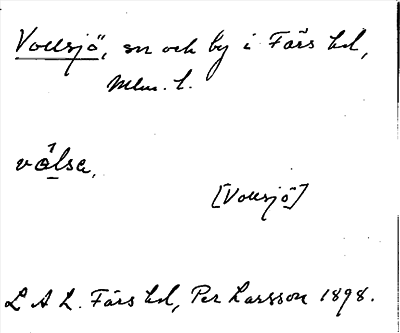 Vollsjö, sn och by i Färs hd,
Mlm. l.
vålsa,
[Vollsjö]
L A L. Färs hd, Per Larsson 1898.